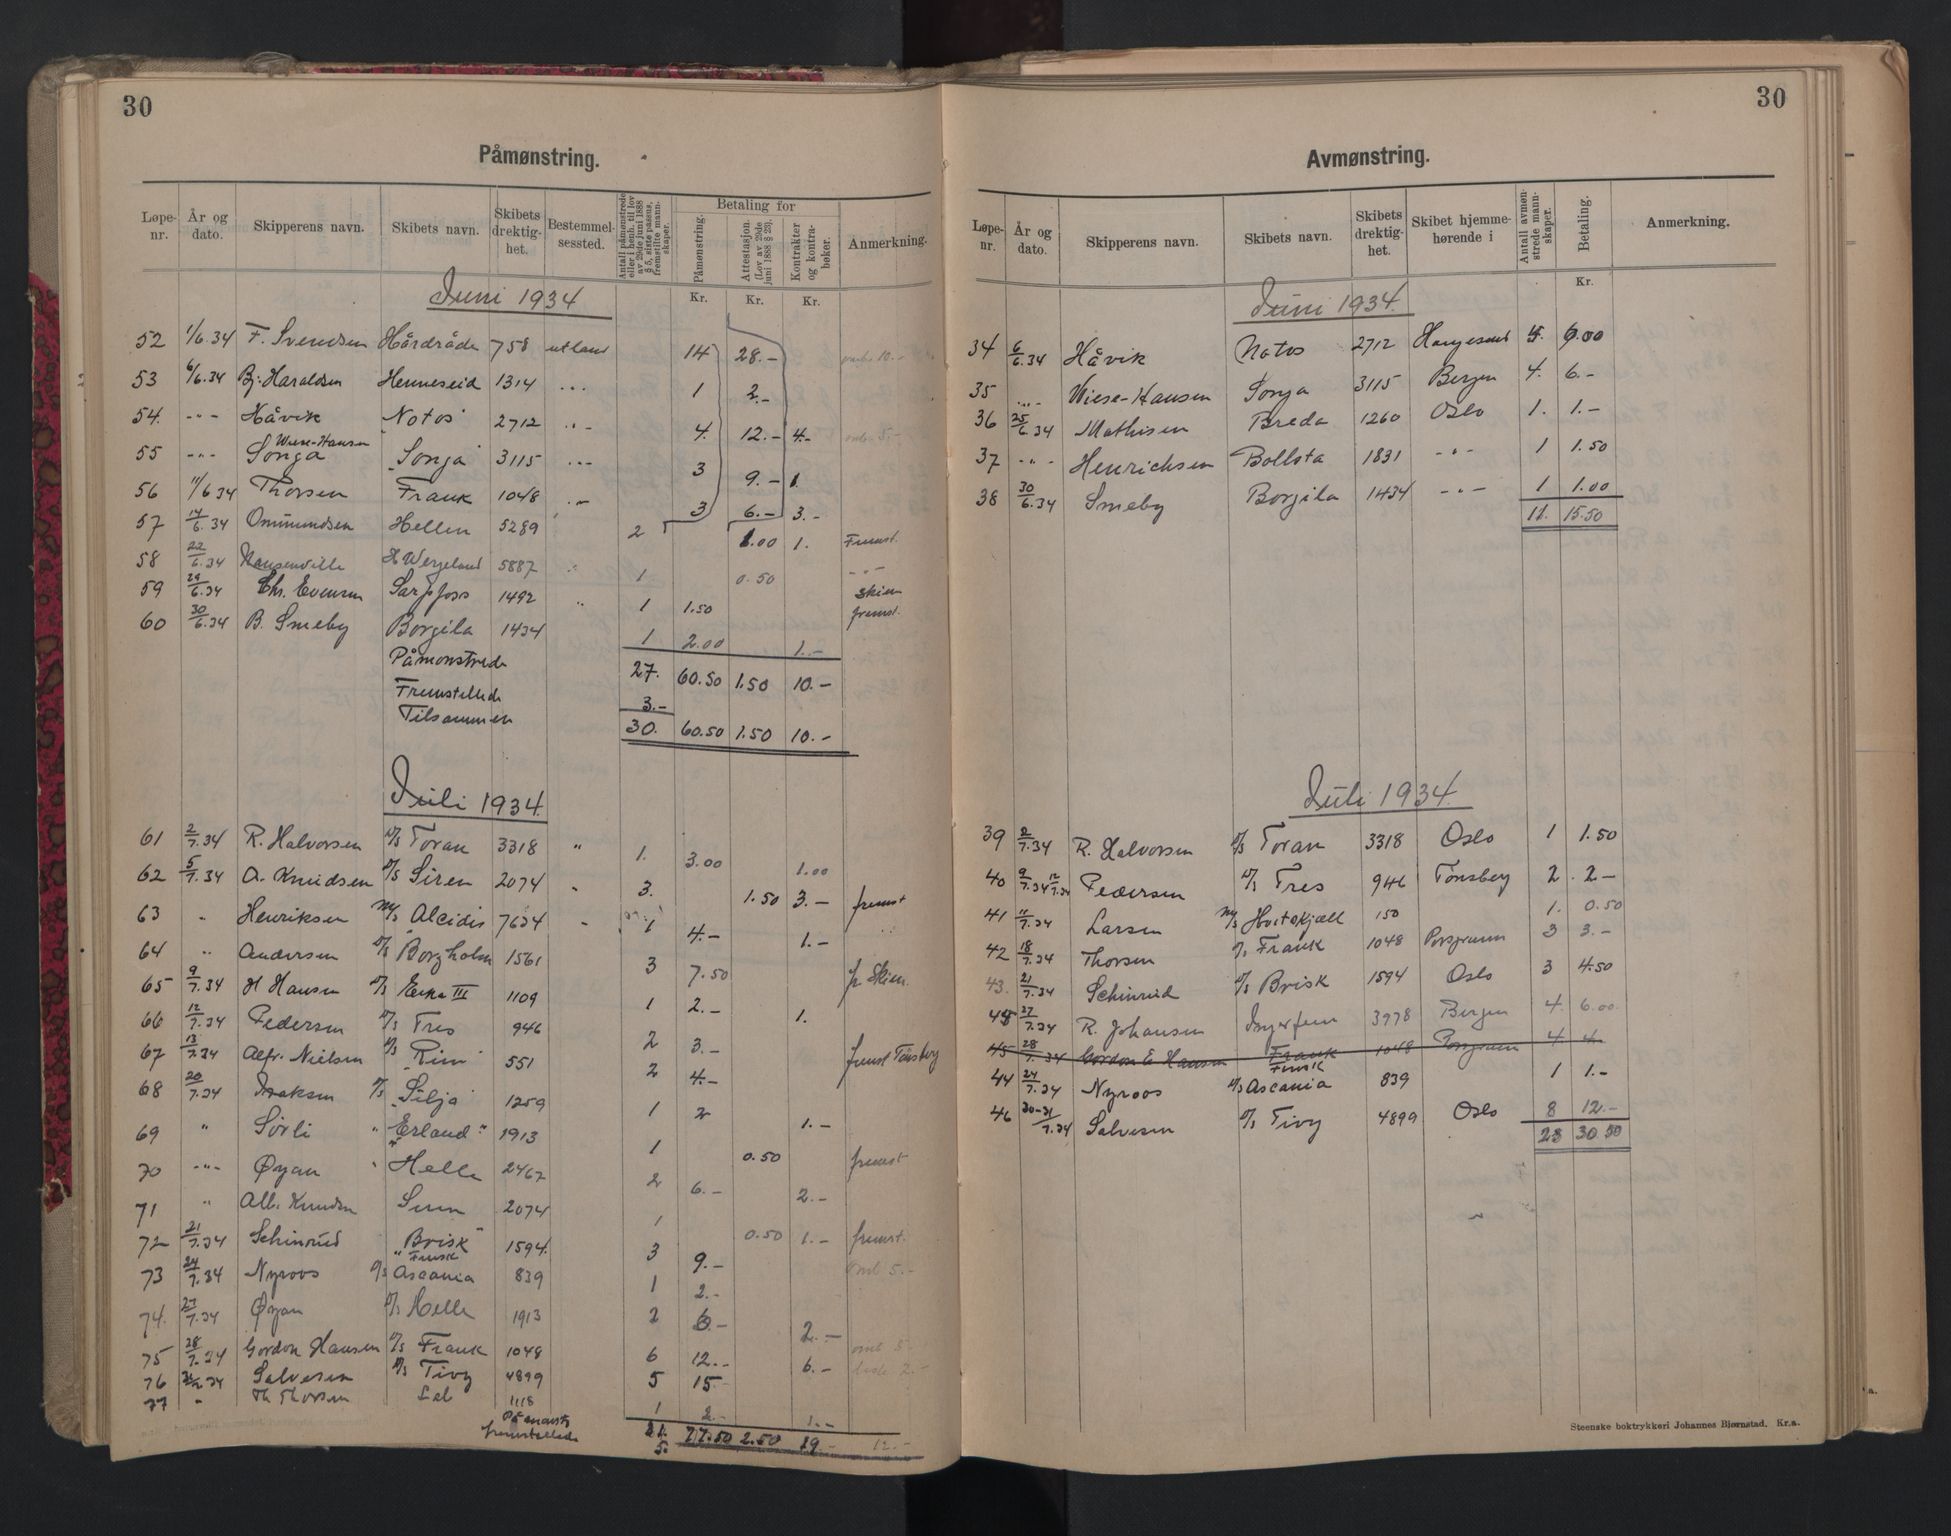 30
Påmønstring.
Løpe-nr. År og dato. Skipperens navn. Skibets navn. Skibets drektig-het. Bestemmel-sessted. Antall påmønstrede eller i henh. til lov av 29de juni 1888 § 5, siste passus, fremstilte mann-skaper. Betaling for Påmønstring. Attestasjon. (Lov av 29de juni 1888 § 23). Kontrakter og kontra-bøker. Anmerkning.
Juni 1934
Kr. Kr. Kr.
52 1/6.34 F. Svendsen Hårdråde 758 utland 14 28.-
53 6/6.34 Bj. Haraldsen Henneseid 1314 ... 1 2.-
54. -"- Håvik "Notos" 2712 "- 4. 12.- 4.-
Wiese-Hansen
55 -"- Songa "Sonja" 3115 ... 3 9.- 1.
56 11/6 34 Thorsen Frank 1048 "- 3 6.- 3.-
57 14/6.34 Ommundsen Hellen 5289 2 1.00 1. Fremst.
58 22/6.34 Hansenville H Wergeland 5887 " 1 0.50 -"-
59 29/6.34 Chr. Evensen Sarpfoss 1492 " 1 1.50 Skien
60 30/6.34 B. Smeby Borgila 1434 1 2.00 1.- fremst.
Påmønstrede 27. 60.50 1.50 10.-
Fremstillede 3.-
Tilsammen 30. 60.50 1.50 10.-
Juli 1934.
61 2/7.34 R. Halvorsen D/S Toran 3318 " 1. 3.00 1.00
62 5/7.34 A. Knudsen D/S Siren 2074 " 3. 1.50 3.- fremst
63 " Henriksen M/S Alcidis 7634 " 1 4.- 1.-
64 " Andersen D/S Borgholm 1561 3 7.50
65 9/7.34 H Hansen D/S Erka III 1109 1 2.- 1. fr. Skien.
66 12/7.34 Pedersen D/S Tres 946 2 3.-
67 13/7.34 Alfr. Nielsen D/S "Rim" 551 2 4.- fremst Tønsberg
68 20/7.34 Isaksen D/S "Silja" 1259 1 2 1.-
69 " Sørli " "Erland" 1913 1 0.50 fremst
70 -"- Øyan " Helle 2467 2 6.- 2.-
71 " Alb. Knudsen Siren 2074 1 0.50 1.- fremst.
72 21/7.34 Schinrud "Brisk" 1594. 3 9.-
Finsk
73 24/7.34 Nyroos D/S Ascania 839 1 2.-
74. 27/7.34 Øyan D/S Helle 1913 2 6.- 2.-
75 28/7.34 Gordon Hansen D/S Frank 1048 6 12.- 6.-
76 Salvesen D/S Tivy 4899 5 15.-
77 " Th Thorsen Lel 1118 1 2.- 1.-
Påmønstr. 31. 77.50 2.50 19.- 12.-
fremstillede 5.
30
Avmønstring.
Løpe-nr. År og dato. Skipperens navn. Skibets navn. Skibets drektig-het. Skibet hjemme-hørende i Antall avmøn-strede mann-skaper. Betaling. Anmerkning.
Kr.
Juni 1934.
34 6/6.34 Håvik Notos 2712 Haugesund 4. 6.00
35 -"- Wiese-Hansen Sonja 3115 Bergen 4. 6.-
36 25/6.34 Mathisen Breda 1260 Oslo 1. 1.-
37 -"- Henrichsen Bollsta 1831 -"- 1 1.50
38 30/6.34 Smeby Borgila 1434 -"- 1 1.00
11. 15.50
Juli 1934.
39 2/7.34 R. Halvorsen D/S Toran 3318 Oslo 1 1.50
40 9/7.34 12/7.34 Pedersen D/S Tres 946 Tønsberg 2 2.-
41 11/7.34 Larsen M/S Hvitskjæll 150 1. 0.50
42 18/7.34 Thorsen D/S Frank 1048 Porsgrunn 3 3.-
43. 21/7.34 Schinrud D/S Brisk 1594 Oslo 3 4.50
45 27/7.34 R. Johansen Ingerfem 3978 Bergen 4. 6.00
45 28/7.34 Gordon E Hansen Frank 1048 Porsgrunn 4 4.
Finsk
44 24/7.34 Nyroos D/S Ascania 839 1 1.-
46 30-31/7.34 Salvesen D/S Tivy 4899 Oslo 8 12.-
23 30.50
Steenske boktrykkeri Johannes Bjørnstad. Kr.a.